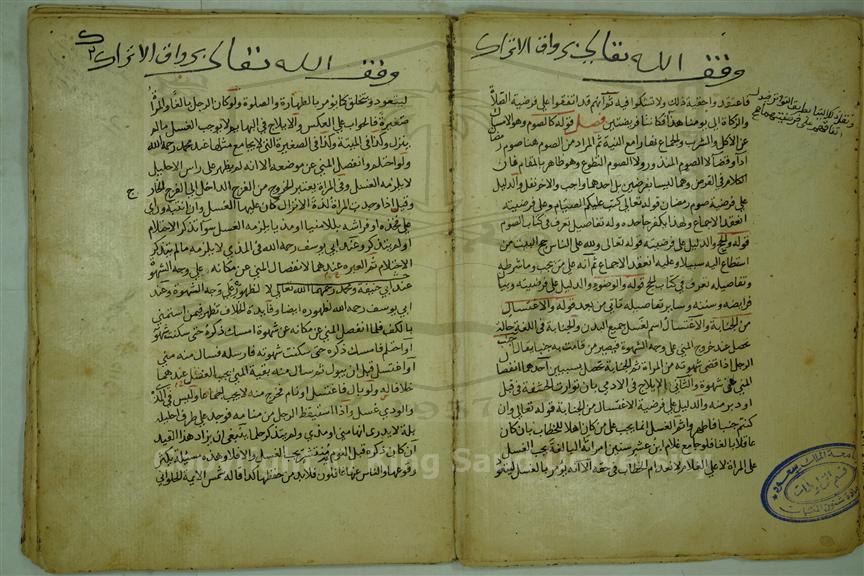 وقف الله تعالى برواق الاتراك
فاعتقد واحقية ذلك ولا تشكوا فيه ثم انهم قد اتفقوا على فرضية الصلاة
والزكاة الى يومنا هذا فكانتا فريضتين فصل قوله كالصوم وهو الامساك
عن الاكل والشرب والجماع نهارا مع النية ثم المراد من الصوم هنا صوم رمضان
اداء وقضاء لا الصوم المنذور ولا الصوم التطوع وهو ظاهر بالمقام فان
الكلام في الفرض وهما ليسا بفرضين بل احدهما واجب والاخر نفل والدليل
على فرضية صوم رمضان قوله تعالى كتب عليكم الصيام وعلى فرضيته
انعقد الاجماع ولهذا يكفر جاحده وله تفاصيل تعرف في كتاب الصوم
قوله والحج والدليل على فرضيته قوله تعالى ولله على الناس حج البيت من
استطاع اليه سبيلا وعليه انعقد الاجماع ثم انه على من يجب وما شرطه
وتفاصيله تعرف في كتاب الحج قوله والوضوء والدليل على فرضيته وبيان
فرايضه وسننه وساير تفاصيله تاتي من بعد قوله والاغتسال
من الجنابة والاغتسال اسم لغسل جميع البدن والجنابة في اللغة حالة
تحصل عند خروج المني على وجه الشهوة فيصير من قامت به جنبا يقال اجنب
الرجل اذا قضى شهوته من المراة ثم الجنابة تحصل بسببين احدهما انفصال
المني عن شهوة والثاني الايلاج في الادمي بان توارت الحشفة في قبل
او دبر منه والدليل على فرضية الاغتسال من الجنابة قوله تعالى وان
كنتم جنبا فاطهروا ثم الغسل انما يجب على من كان اهلا للخطاب بان كان
عاقلا بالغا فلو جامع غلام ابن عشر سنين امراته البالغة يجب الغسل
على المراة لا على الغلام لانعدام الخطاب في حقه الا انه يومر بالغسل
وقف الله تعالى برواق الاتراك
ليتعود ويتخلق كما يومر بالطهارة والصلوة ولو كان الرجل بالغا والمراة
صغيرة فالجواب على العكس والايلاج في البهايم لا يوجب الغسل ما لم
ينزل وكذا في الميتة وكذا في الصغيرة التي لا يجامع مثلها عند محمد رحمه الله
ولو احتلم وانفصل المني عن موضعه الا انه لم يظهر على راس الاحليل
لا يلزمه الغسل وفي المراة يعتبر الخروج من الفرج الداخل الى الفرج الخارج
وقيل اذا وجدت المراة لذة الانزال كان عليها الغسل وان انتبه وراى
على فخذه او فراشه بللا منيا او مذيا يلزمه الغسل سوا تذكر الاحتلام
او لم يتذكر وعند ابي يوسف رحمه الله في المذي لا يلزمه ما لم يتذكر
الاحتلام ثم العبرة عندهما لانفصال المني عن مكانه على وجه الشهوة
عند ابي حنيفة ومحمد رحمهما الله تعالى لا لظهوره على وجه الشهوة وعند
ابي يوسف رحمه الله لظهوره ايضا وفايدة الخلاف تظهر فيمن استمنى
بالكف فلما انفصل المني عن مكانه عن شهوة امسك ذكره حتى سكنت شهوته
او احتلم فامسك ذكره حتى سكنت شهوته فارسله فسال منه مني
او اغتسل قبل ان يبول ثم سال منه بقية المني يجب الغسل عندهما
خلافا له ولو بال فاغتسل او نام فخرج منه لا يجب اجماعا وليس في المذي
والودي غسل واذا استيقظ الرجل من منامه فوجد على طرف احليله
بلة لا يدري انها مني او مذي ولم يتذكر حلما ينبغي ان يزاد هذا القيد
ان كان ذكره قبل النوم منتشرا يجب الغسل والا فلا وهذه مسئلة يكثر
وقوعها والناس عنها غافلون فلا بد من حفظها كذا قاله شمس الايمة الحلواني